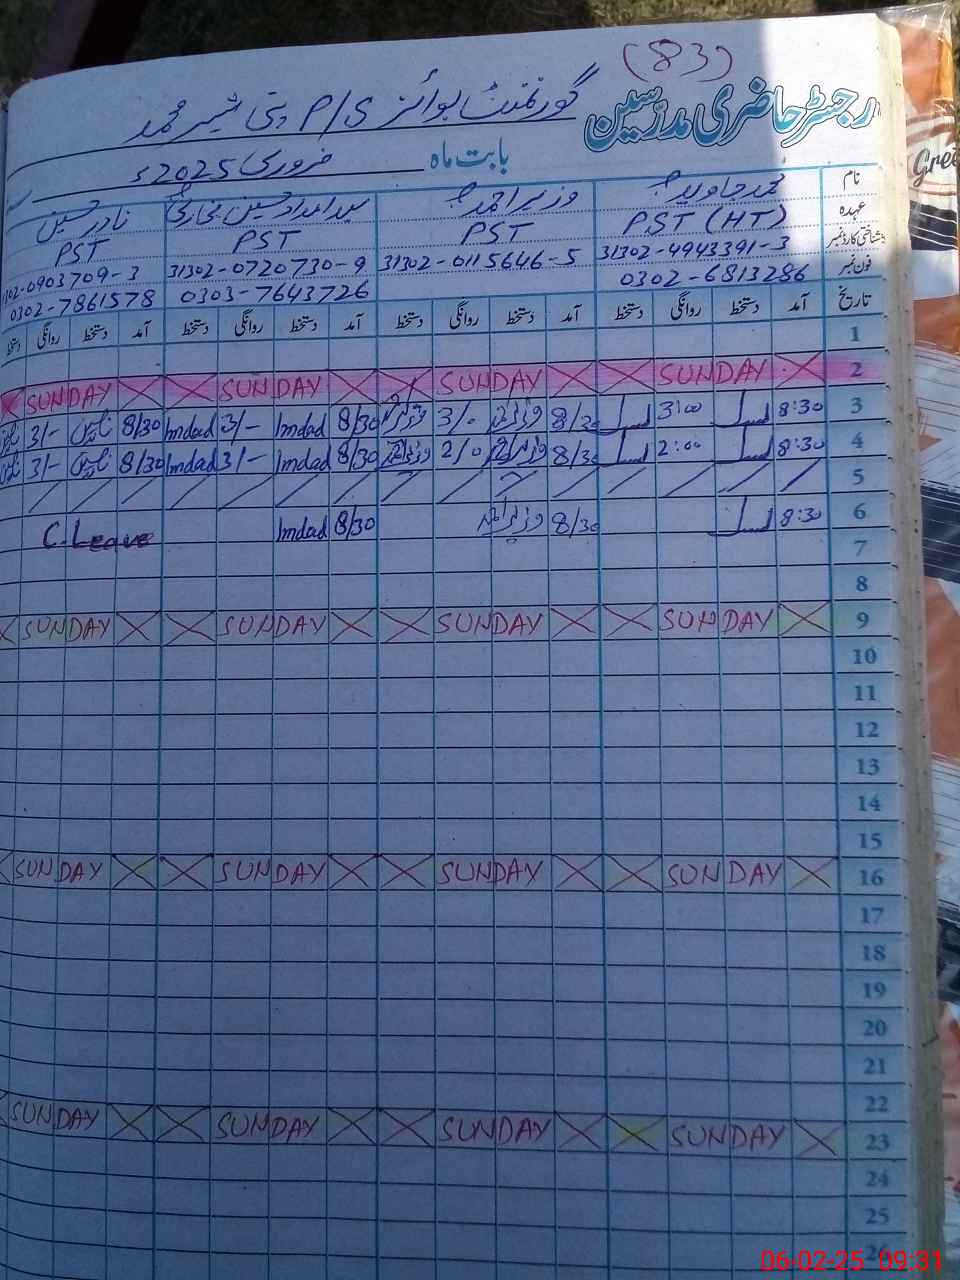 (83)
رجسٹر حاضری مدرسین
گورنمنٹ بوائز P/S بنی شیر محمد
بابت ماہ فروری 2025 ء
نام محمد جاوید وزیر احمد سید امداد حسین بخاری نادر حسین
عہدہ PST (HT) PST PST PST
شناختی کارڈ نمبر 31302-4943391-3 31302-0115646-5 31302-0720730-9 302-0903709-3
فون نمبر 0302-6813286 0303-7643726 0302-7861578
تاریخ آمد دستخط روانگی دستخط آمد دستخط روانگی دستخط آمد دستخط روانگی دستخط آمد دستخط روانگی دستخط
1
2 SUNDAY SUNDAY SUNDAY SUNDAY
3 8:30 3:00 8/30 3/0 8/30 Imdad 3/- Imdad 8/30 3/-
4 8:30 2:00 8/30 2/0 8/30 Imdad 3/- Imdad 8/30 3/-
5
6 8:30 8/30 8/30 Imdad C.Leave
7
8
9 SUNDAY SUNDAY SUNDAY SUNDAY
10
11
12
13
14
15
16 SUNDAY SUNDAY SUNDAY SUNDAY
17
18
19
20
21
22
23 SUNDAY SUNDAY SUNDAY SUNDAY
24
25
26
Gree
06-02-25 09:31